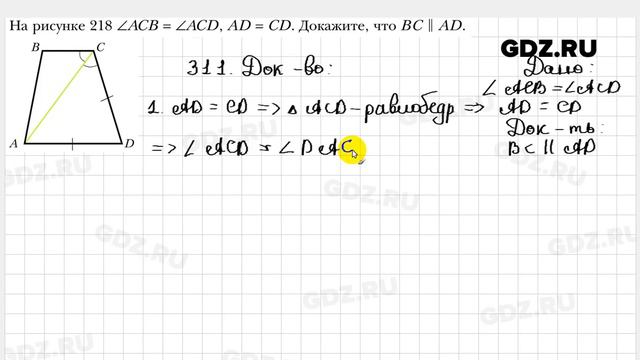 На рисунке 218 ∠ACB = ∠ACD, AD = CD. Докажите, что BC ∥ AD.
GDZ.RU
B C
A D
311. Док-во:
Дано:
∠ACB = ∠ACD
1. AD = CD => △ ACD - равнобедр =>
AD = CD
Док-ть:
=> ∠ ACD = ∠ DAC
BC || AD
GDZ.RU
GDZ.RU
GDZ.RU
GDZ.RU
GDZ.RU
GDZ.RU